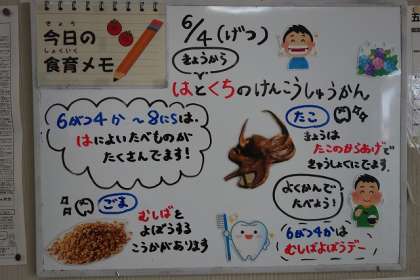 きょう
今日の
しょくいく
食育メモ
6/4(げつ)
きょうから
はとくちのけんこうしゅうかん
6がつ4か〜8にちは、
はによいたべものが
たくさんでます!
たこ
きょうは
たこのからあげで
きゅうしょくにでます。
よくかんで
たべよう!
ごま
むしばを
よぼうする
こうかがあります
6がつ4かは
むしばよぼうデー